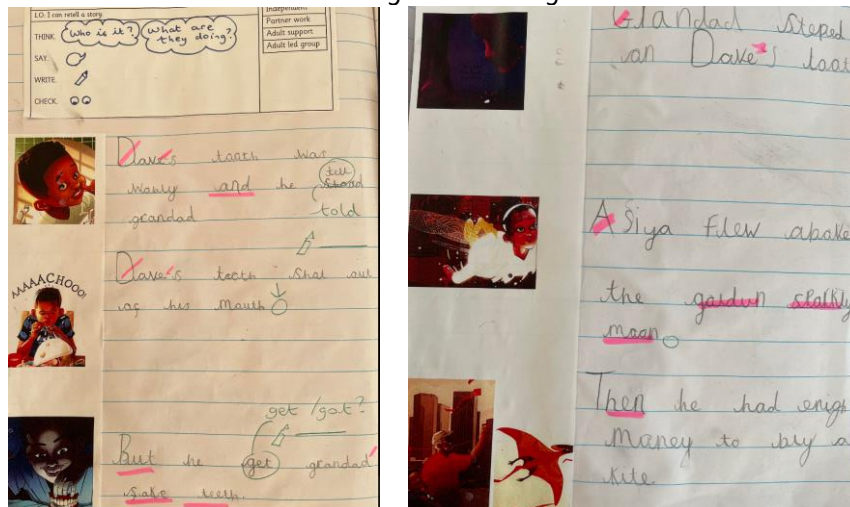 L.O: I can retell a story.
THINK. Who is it? What are they doing?
SAY.
WRITE.
CHECK.
Independent
Partner work
Adult support
Adult led group
Dave's tooth was
wobly and he
grandad told
Dave's tooth shot out
of his mouth
AAAAACHOOO!
get/got?
But he get grandad'
fake teeth.
Grandad steped
on Dave's
Asiya flew above
the
moon
Then he had
money to buy a
kite